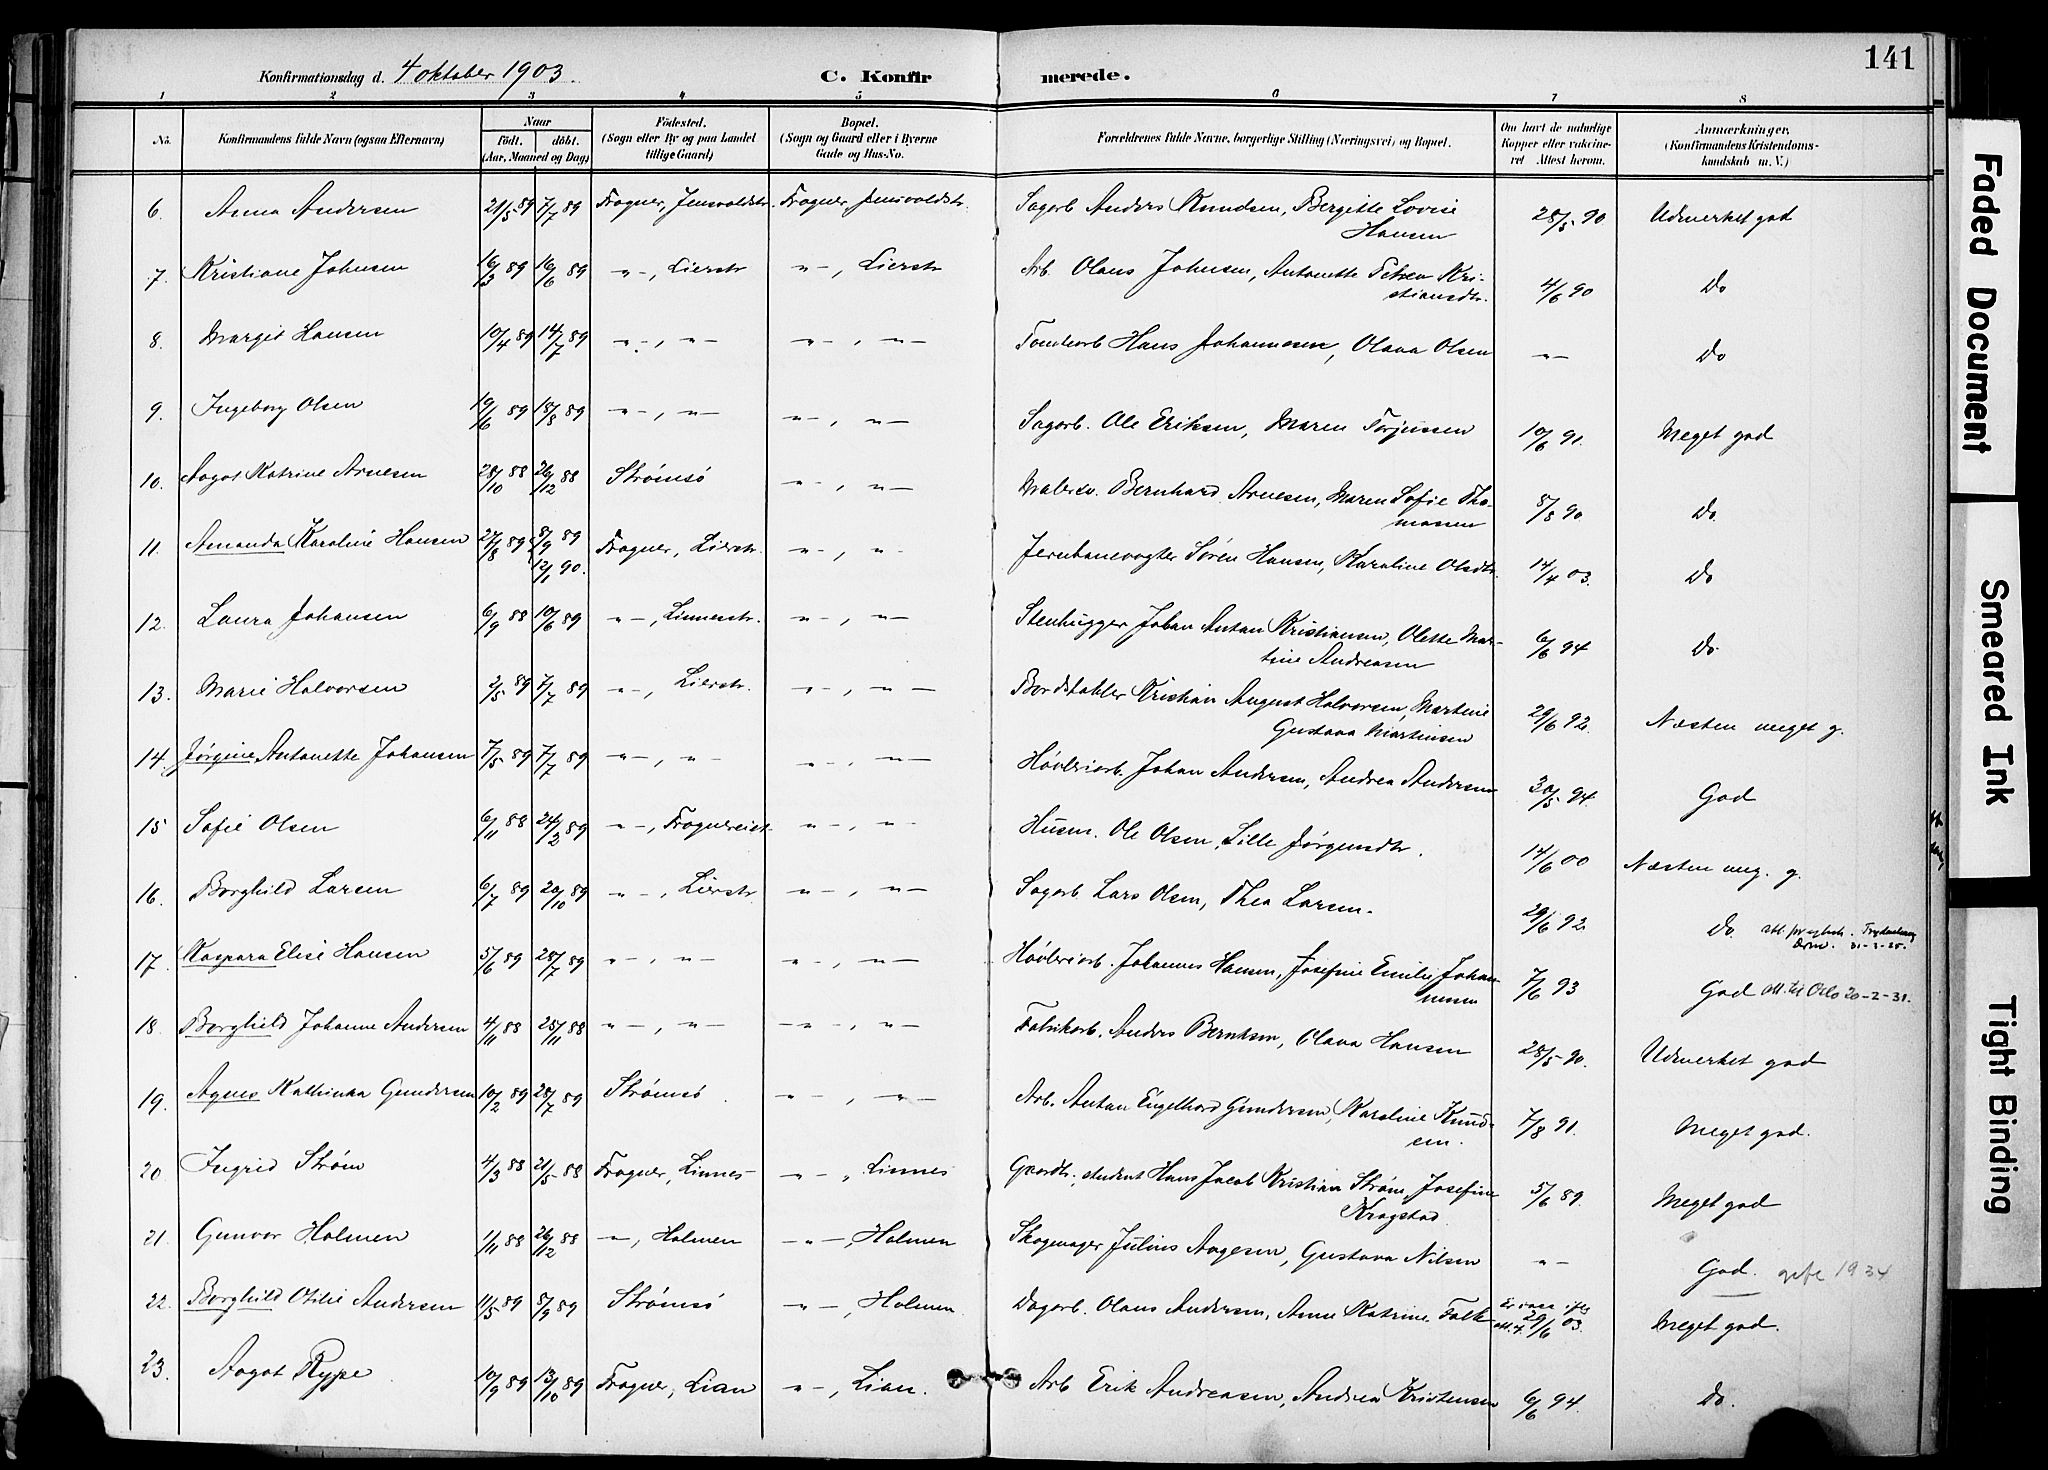 141
Konfirmationsdag d. 4 oktober 1903. C. Konfir merede.
1 2 3 4 5 6 7 8
No. Konfirmandens fulde Navn (ogsaa Efternavn) Naar födt. döbt. (Aar, Maaned og Dag) Födested. (Sogn eller By og paa Landet tillige Gaard) Bopæl. (Sogn og Gaard eller i Byerne Gade og Hus-No. Forældrenes fulde Navne, borgerlige Stilling (Næringsvei) og Bopæl. Om havt de naturlige Kopper eller vakcineret Attest herom. Anmærkninger. (Konfirmandens Kristendomskundskab m. V.)
6. Anna Andersen 21/5 89 7/7 89 Frogner, Jensvoldstr. Frogner, Jensvoldstr. Sagarb. Anders Knudsen, Bergitte Lovise 28/5 90 Udmerket god
Hansen
7. Kristiane Johnsen 16/3 89 16/6 89 "–, Lierstr "–, Lierstr Arb. Olaus Johnsen, Antonette Petrea Kri- 4/6 90 Do
stiansdtr.
8. Margit Hansen 10/4 89 14/7 89 "–, "– "–, "– Tomtearb Hans Johannesen, Olava Olsen "– Do
9. Ingeborg Olsen 19/6 89 18/8 89 "–, "– "–, "– Sagarb. Ole Eriksen, Maren Torjussen 10/6 91. Meget god
10. Aagot Katrine Arnesen 28/10 88 26/12 88 Strömsö "–, "– Malersv. Bernhard Arnesen, Maren Sofie Tho- 8/8 90 Do
massen
11. Amanda Karoline Hansen 27/8 89 8/9 89 Frogner, Lierstr. "–, "– Jernbanevogter Sören Hansen, Karoline Olsdtr. 14/4 03. Do
12/1 90.
12. Laura Johansen 6/9 88 10/6 89 "–, Linnesstr. "–, "– Stenhugger Johan Antan Kristiansen, Olette Mar- 6/6 94 Do
tine Andreasen
13. Marie Halvorsen 2/5 89 7/7 89 "–, Lierstr. "–, "– Bordstabler Kristian August Halvorsen, Martine 29/6 92. Næsten meget g.
Gustava Martinsen
14. Jörgine Antonette Johansen 7/5 89 7/7 89 "–, "– "–, "– Høvleriarb. Johan Andersen, Andrea Andersen 30/5 94 God
15 Sofie Olsen 6/11 88 24/2 89 "–, Frognereiet "–, "– Husm. Ole Olsen, Lille Jörgensdtr. 14/6 00 Næsten meg. g.
16. Borghild Larsen 6/7 89 20/10 89 "–, Lierstr. "–, "– Sagarb Lars Olsen, Thea Larsen. 29/6 92 Do. att.
Drm. 31-3-25.
17. Kaspara Elise Hansen 5/6 89 28/7 89 "–, "– "–, "– Høvleriarb. Johannes Hansen, Josefine Emilie Johan- 7/6 93 God att. til Oslo 20-2-31.
nesen
18. Borghild Johanne Andersen 4/11 88 25/11 88 "–, "– "–, "– Fabrikarb. Anders Berntsen, Olava Hansen 28/5 90. Udmerket god
19. Agnes Kathinka Gundersen 10/2 89 28/7 89 Strömsö "–, "– Arb. Antan Engelhard Gundersen, Karoline Knud- 7/8 91. Meget god.
sen.
20 Ingrid Ström 4/3 88 21/5 88 Frogner, Linnes "–, Linnes Gaardbr., student Hans Jacob Kristian Ström, Josefine 5/6 89. Meget god
Kragstad.
21. Gunvor Holmen 1/11 88 26/12 88 "–, Holmen "–, Holmen Skogeneger Julius Aagesen, Gustava Nilsen "– God. gift 1934
22. Borghild Otilie Andersen 11/5 89 8/9 89 Strömsö "–, Holmen. Dagarb. Olaus Andersen, Anne Katrine Falk Er vacc. ifg. att. f. 29/6 03. Meget god.
23. Aagot Rype 10/9 89 13/10 89 Frogner, Lian "–, Lian. Arb Erik Andreasen, Andrea Kristensen 6/6 94. Do.
Faded Document
Smeared Ink
Tight Binding